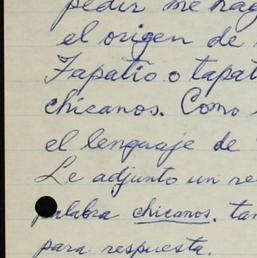 pedir me hag
el origen de
Tapatío o tapat
chicanos. Como
el lenguaje de
Le adjunto un re
palabra chicanos. tam
para respuesta.